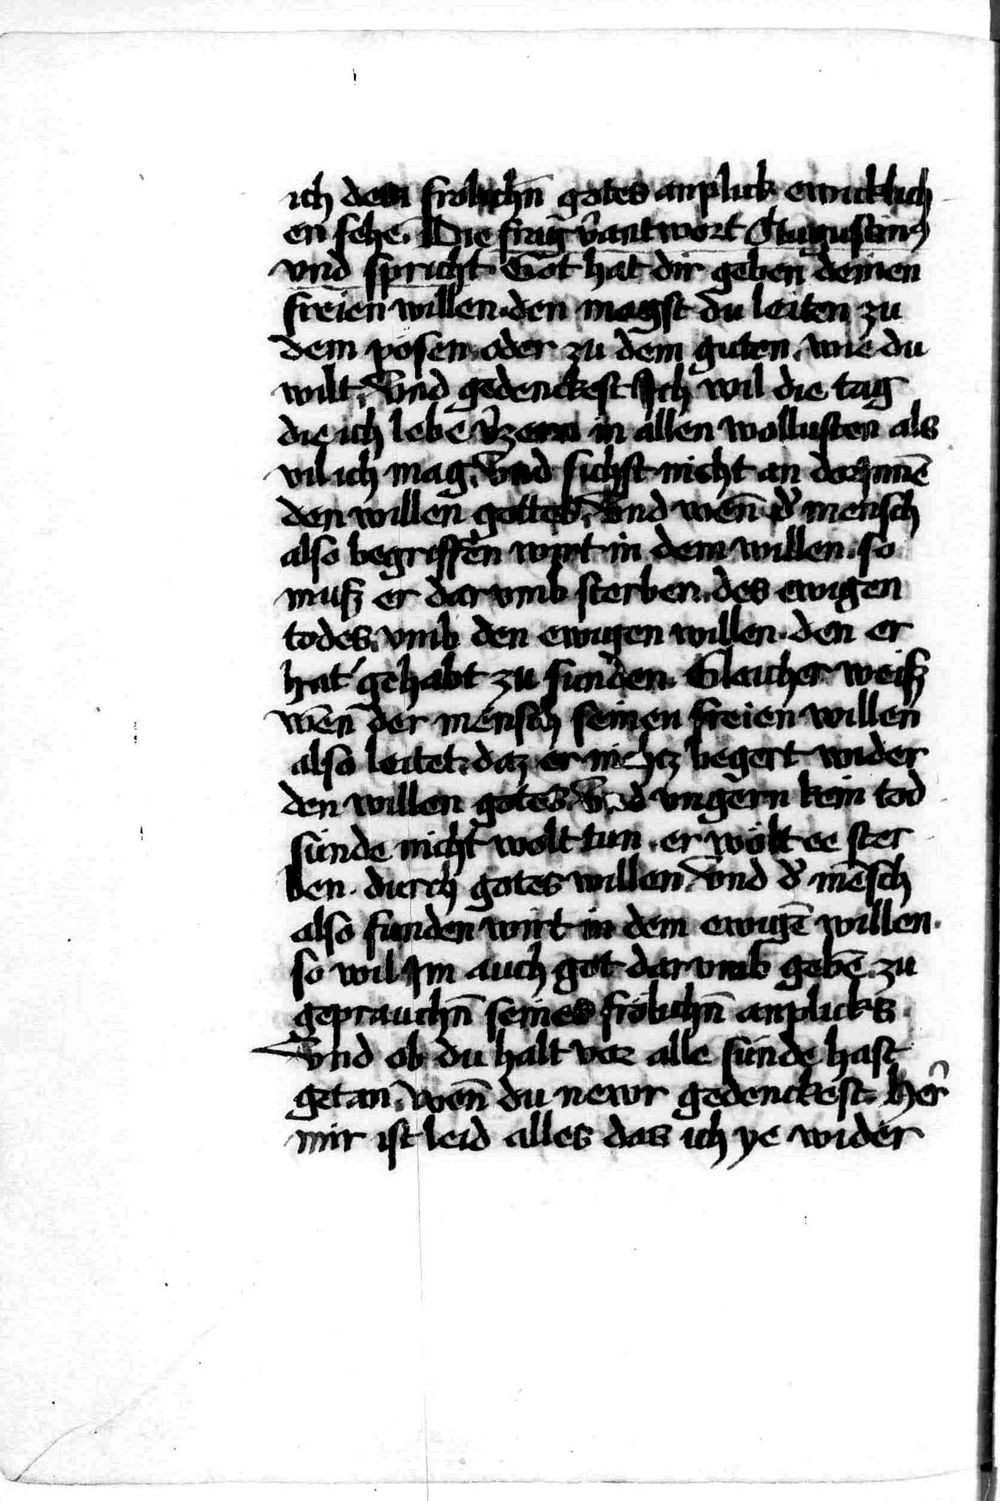 ich den frölichn̄ gotes anplick ewicklich
en sehē. Die frag v̄antwort S augustinꝰ
vnd spricht Got hat dir geben deinen
freien willen. den magst du leiten zu
dem pösen. oder zu dem guten. wie du
wilt. Vnd gedenckest Ich wil die tag
die ich lebe v̄zern in allen wollusten als
vil ich mag. Vnd sichst nicht an dorjnnē
den willen gottes. Vnd wen̄ d̄ mensch
also begriffen wirt in dem willen. so
muß er dar vmb sterben. des ewigen
todes. vmb den ewigen willen. den er
hat gehabt zu sunden. Gleicher weiß
wen̄ der mensch seinen freien willen
also leitet. daz er nichtz begert wider
den willen gotes. Vnd vngern kein tod
sünde nicht wolt tun. er wölt ee ster
ben. durch gotes willen. Vnd d̄ mēsch
also funden wirt in dem ewigē willen.
so wil Im auch got dar vmb gebē zu
geprauchn̄ seines frölichn̄ anplicks
Vnd ob du halt vor alle sünde hast
getan. wen̄ du newr gedenckest. her̄
mir ist leid alles das ich ye wider